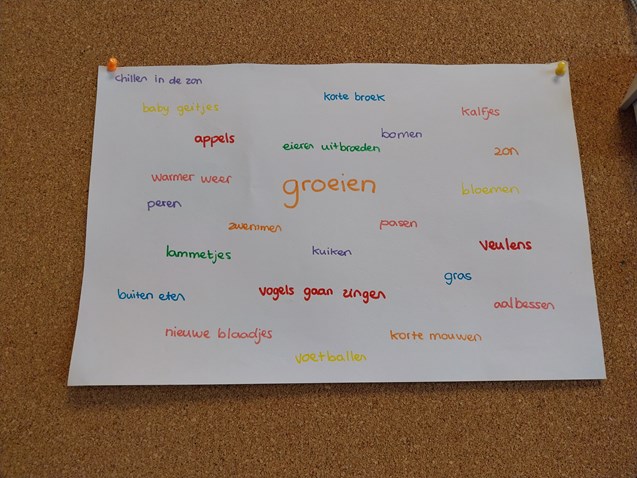 chillen in de zon
korte broek
baby geitjes
kalfjes
appels
bomen
eieren uitbroeden
zon
warmer weer
groeien
bloemen
peren
zwemmen
pasen
lammetjes
kuiken
veulens
gras
buiten eten
vogels gaan zingen
aalbessen
nieuwe blaadjes
korte mouwen
voetballen